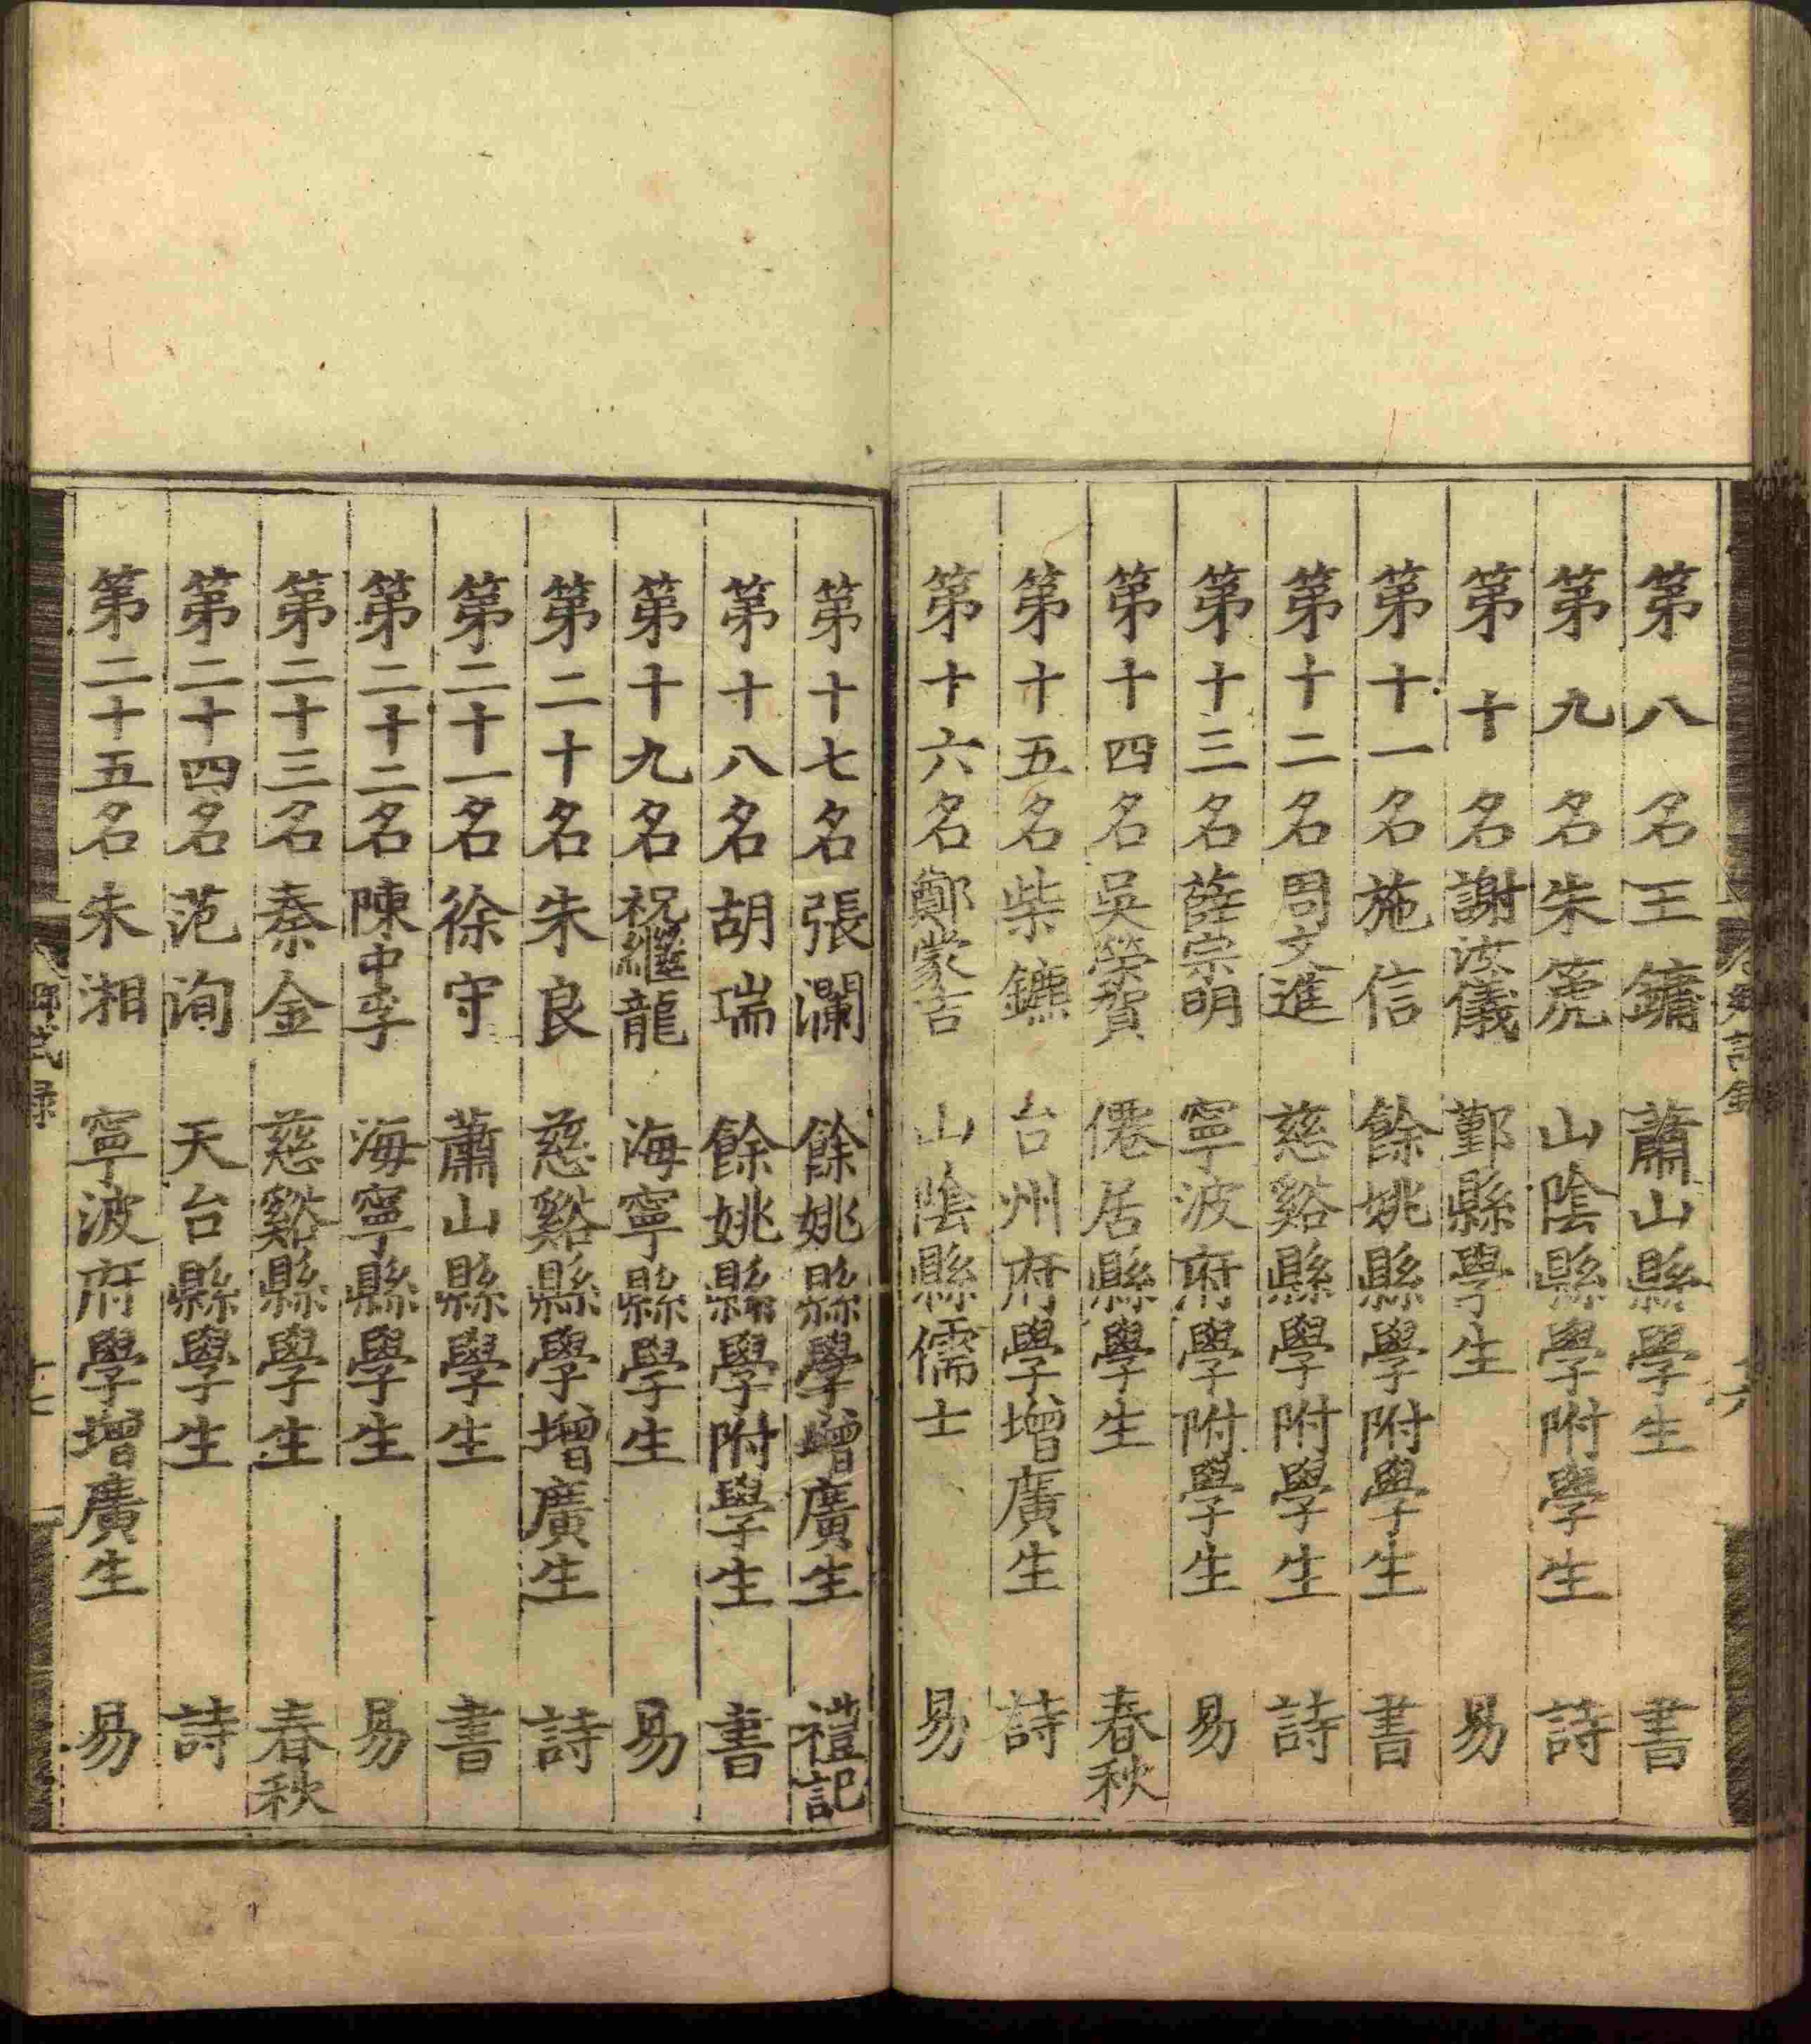 第八名王鏞 蕭山縣學生 書
第九名朱箎 山陰縣學附學生 詩
第十名謝汝儀 鄞縣學生 易
第十一名施信 餘姚縣學附學生 書
第十二名周文進 慈谿縣學附學生 詩
第十三名薛宗明 寧波府學附學生 易
第十四名吳榮賀 僊居縣學生 春秋
第十五名柴鑣 台州府學增廣生 詩
第十六名鄭蒙吉 山陰縣儒士 易
第十七名張瀾 餘姚縣學增廣生 禮記
第十八名胡瑞 餘姚縣學附學生 書
第十九名祝繼龍 海寧縣學生 易
第二十名朱良 慈谿縣學增廣生 詩
第二十一名徐守 蕭山縣學生 書
第二十二名陳中孚 海寧縣學生 易
第二十三名秦金 慈谿縣學生 春秋
第二十四名范洵 天台縣學生 詩
第二十五名朱湘 寧波府學增廣生 易